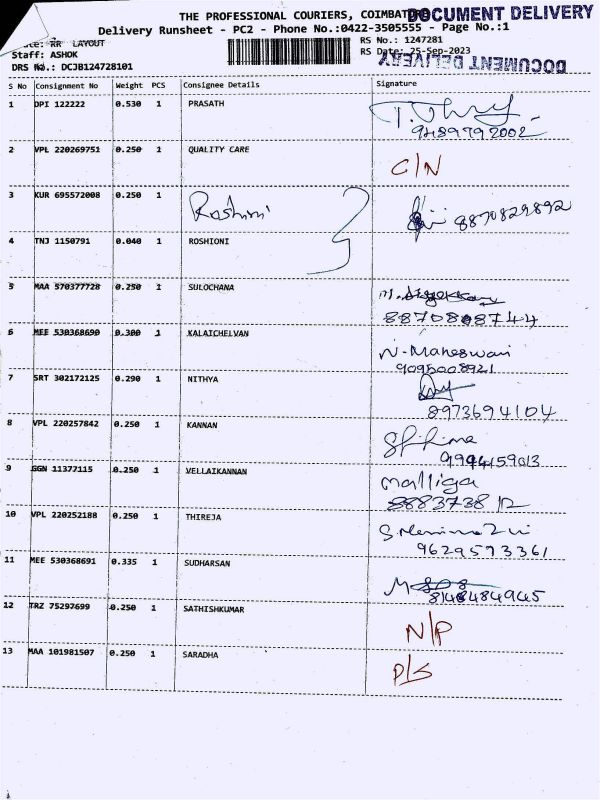 THE PROFESSIONAL COURIERS, COIMBAT
DOCUMENT DELIVERY
Delivery Runsheet - PC2 - Phone No.:0422-3505555 - Page No.:1
RR LAYOUT
RS No.: 1247281
Staff: ASHOK
RS Date: 25-Sep-2023
DOCUMENT DELIVERY
DRS No.: DCJB124728101
S No Consignment No Weight PCS Consignee Details Signature
1 DPI 122222 0.530 1 PRASATH
9489792002
2 VPL 220269751 0.250 1 QUALITY CARE C/N
3 KUR 695572008 0.250 1 Roshini 8870829892
4 TNJ 1150791 0.040 1 ROSHIONI
5 MAA 570377728 0.250 1 SULOCHANA
8870808744
6 MEE 530368690 0.300 1 KALAICHELVAN N. Maheswari
9095008921
7 SRT 302172125 0.290 1 NITHYA
8973694104
8 VPL 220257842 0.250 1 KANNAN
9994159013
9 GGN 11377115 0.250 1 VELLAIKANNAN Malliga
10 VPL 220252188 0.250 1 THIREJA
9629573361
11 MEE 530368691 0.335 1 SUDHARSAN
12 TRZ 75297699 0.250 1 SATHISHKUMAR N/P
13 MAA 101981507 0.250 1 SARADHA P/S